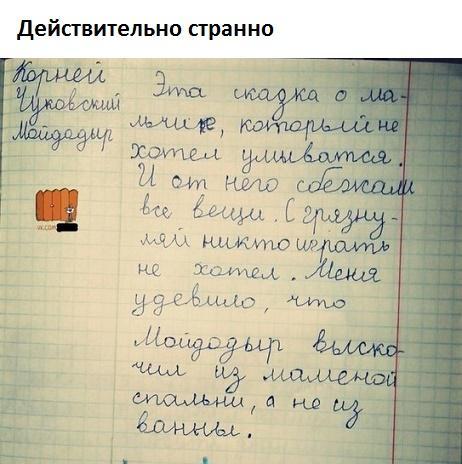 Действительно странно
Корней
Чуковский
Мойдодыр
Эта скадка о ма-
льчике, который не
хотел умыватся.
И от него сбежали
все вещи. С грязну-
лей никто играть
не хотел. Меня
удевило, что
Мойдодыр выско-
чил из маменой
спальни, а не из
ванны.
vk.com